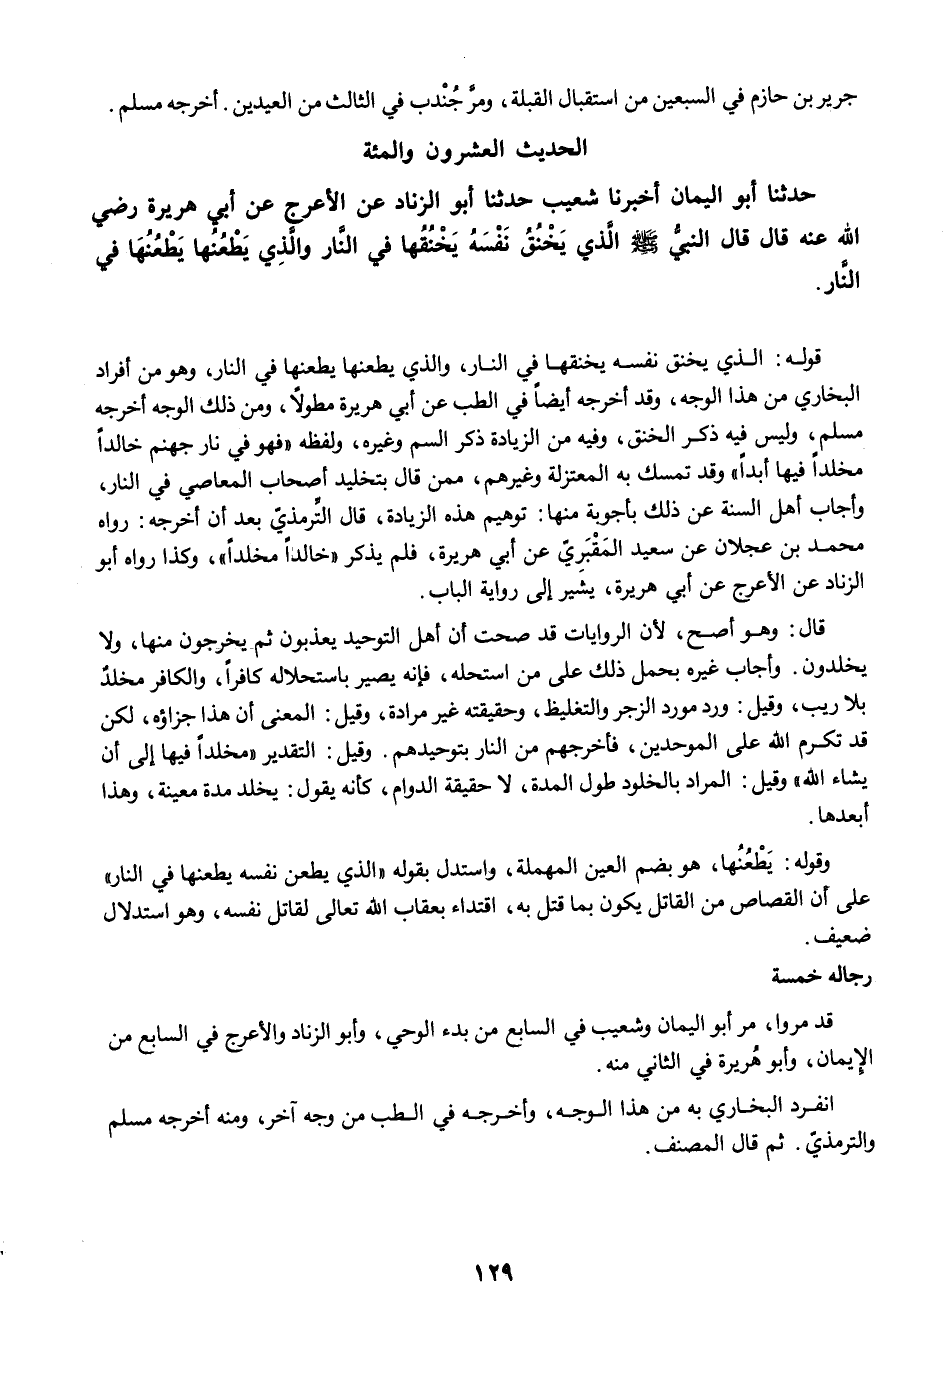 جرير بن حازم في السبعين من استقبال القبلة، ومرَّ جُنْدب في الثالث من العيدين. أخرجه مسلم.
الحديث العشرون والمئة
حدثنا أبو اليمان أخبرنا شعيب حدثنا أبو الزناد عن الأعرج عن أبي هريرة رضي
الله عنه قال قال النبيُّ ﷺ الَّذي يَخْنُقُ نَفْسَهُ يَخْنُقُها في النَّار والَّذِي يَطْعُنُها يَطْعُنُهَا في
النَّار.
قوله: الذي يخنق نفسه يخنقها في النار، والذي يطعنها يطعنها في النار، وهو من أفراد
البخاري من هذا الوجه، وقد أخرجه أيضاً في الطب عن أبي هريرة مطولاً، ومن ذلك الوجه أخرجه
مسلم، وليس فيه ذكر الخنق، وفيه من الزيادة ذكر السم وغيره، ولفظه «فهو في نار جهنم خالداً
مخلداً فيها أبداً» وقد تمسك به المعتزلة وغيرهم، ممن قال بتخليد أصحاب المعاصي في النار،
وأجاب أهل السنة عن ذلك بأجوبة منها: توهيم هذه الزيادة، قال التِّرمذيّ بعد أن أخرجه: رواه
محمد بن عجلان عن سعيد المَقْبَرِيّ عن أبي هريرة، فلم يذكر «خالداً مخلداً»، وكذا رواه أبو
الزناد عن الأعرج عن أبي هريرة، يشير إلى رواية الباب.
قال: وهو أصح، لأن الروايات قد صحت أن أهل التوحيد يعذبون ثم يخرجون منها، ولا
يخلدون. وأجاب غيره بحمل ذلك على من استحله، فإنه يصير باستحلاله كافراً، والكافر مخلدٌ
بلا ريب، وقيل: ورد مورد الزجر والتغليظ، وحقيقته غير مرادة، وقيل: المعنى أن هذا جزاؤه، لكن
قد تكرم الله على الموحدين، فأخرجهم من النار بتوحيدهم. وقيل: التقدير «مخلداً فيها إلى أن
يشاء الله» وقيل: المراد بالخلود طول المدة، لا حقيقة الدوام، كأنه يقول: يخلد مدة معينة، وهذا
أبعدها.
وقوله: يَطْعُنُها، هو بضم العين المهملة، واستدل بقوله «الذي يطعن نفسه يطعنها في النار»
على أن القصاص من القاتل يكون بما قتل به، اقتداء بعقاب الله تعالى لقاتل نفسه، وهو استدلال
ضعيف.
رجاله خمسة
قد مروا، مر أبو اليمان وشعيب في السابع من بدء الوحي، وأبو الزناد والأعرج في السابع من
الإيمان، وأبو هُريرة في الثاني منه.
انفرد البخاري به من هذا الوجه، وأخرجه في الطب من وجه آخر، ومنه أخرجه مسلم
والترمذيّ. ثم قال المصنف.
١٢٩